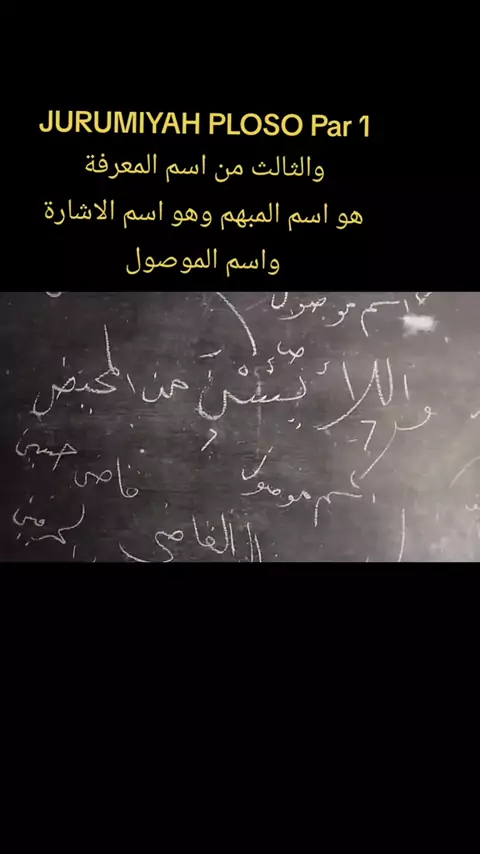 JURUMIYAH PLOSO Par 1
والثالث من اسم المعرفة
هو اسم المبهم وهو اسم الاشارة
واسم الموصول
اسم موصول
اللائ يئسن من المحيض
اسم موصول
القاضى